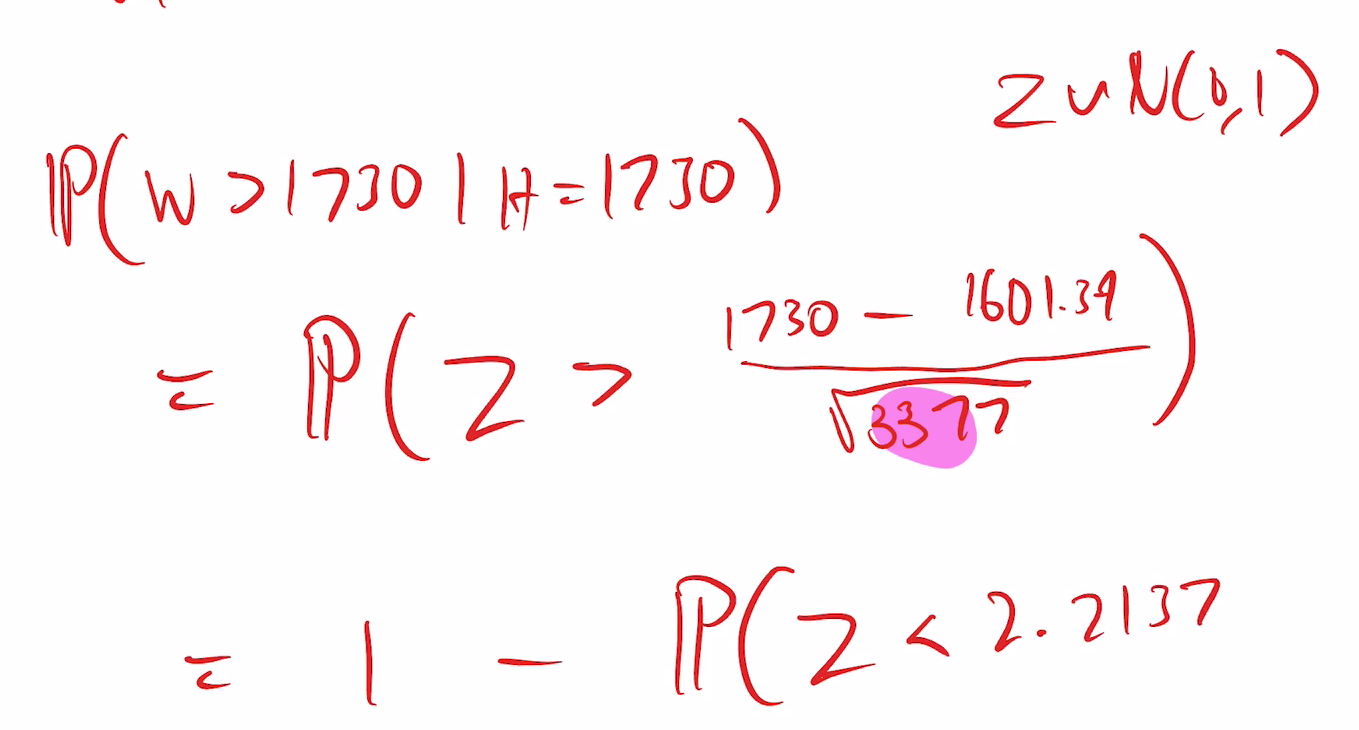 Z ~ N(0,1)
ℙ(W > 1730 | H = 1730)
= ℙ(Z > (1730 − 1601.34)/√3377)
= 1 − ℙ(Z < 2.2137